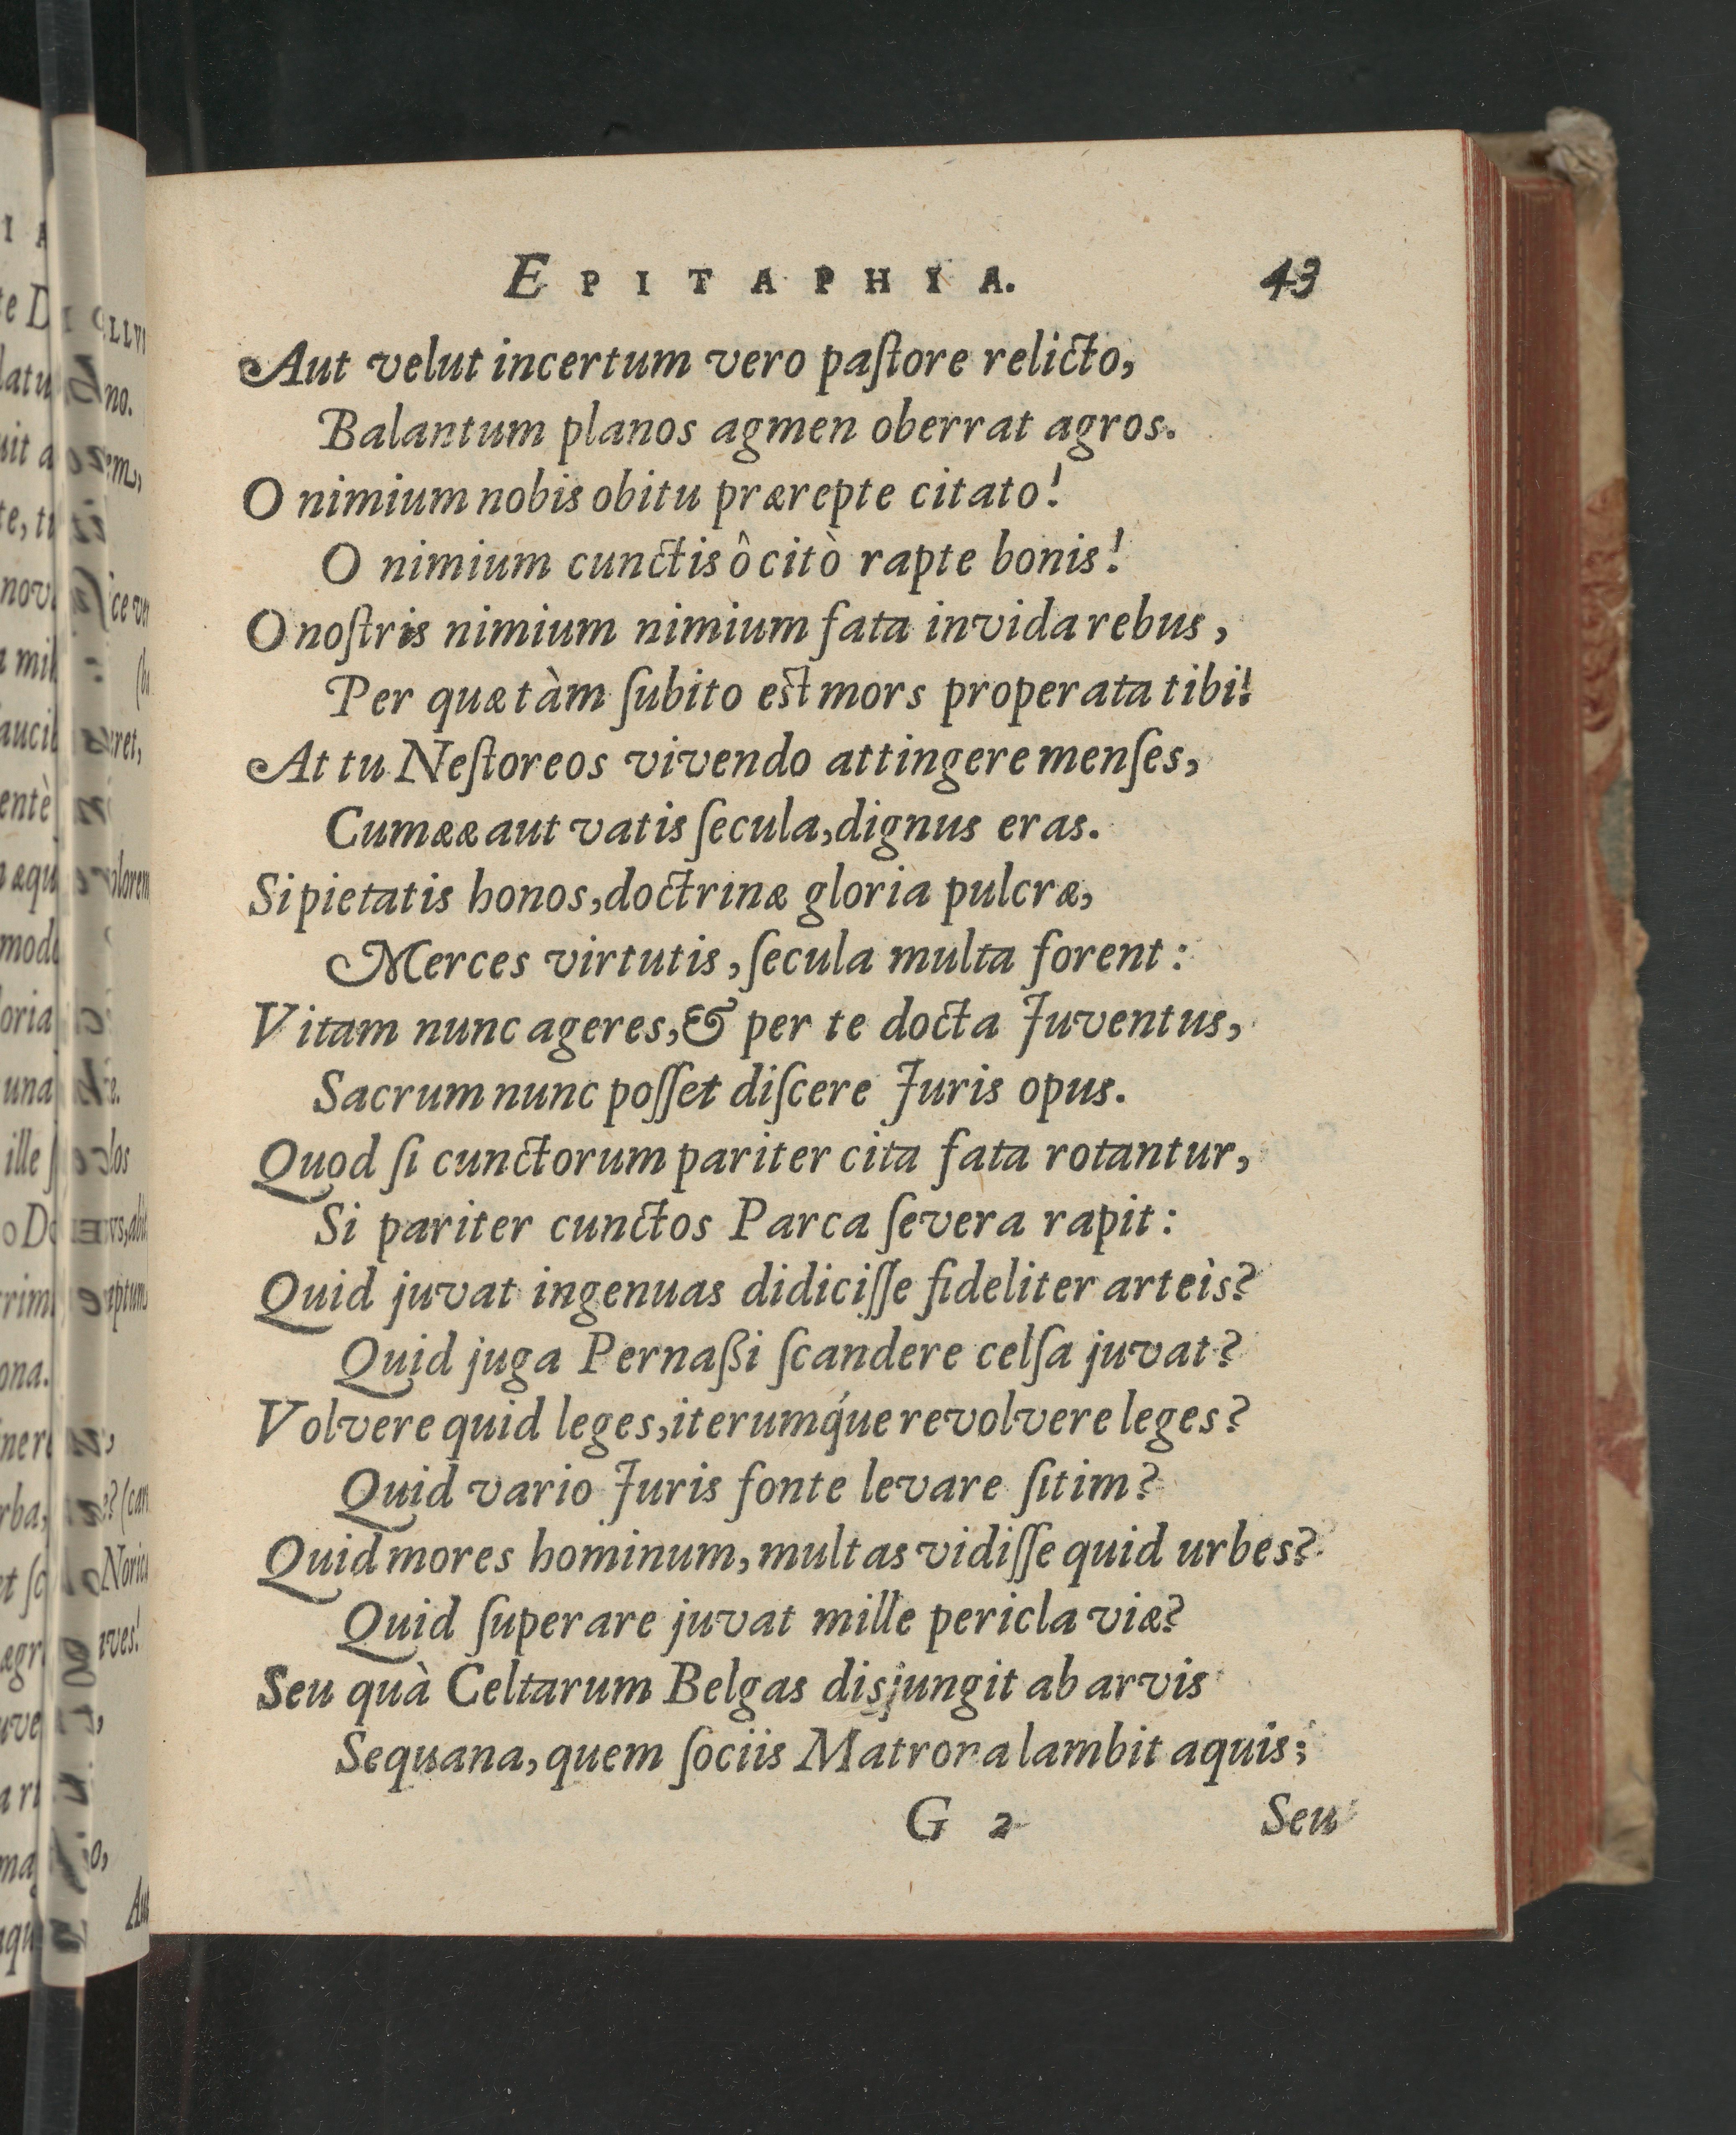 EPITAPHIA. 43
Aut velut incertum vero paſtore relicto,
Balantum planos agmen oberrat agros.
O nimium nobis obitu prærepte citato!
O nimium cunctis ô citò rapte bonis!
O noſtris nimium nimium fata invida rebus,
Per quæ tàm ſubito eſt mors properata tibi!
At tu Neſtoreos vivendo attingere menſes,
Cumææ aut vatis ſecula, dignus eras.
Si pietatis honos, doctrinæ gloria pulcræ,
Merces virtutis, ſecula multa forent:
Vitam nunc ageres, & per te docta Juventus,
Sacrum nunc poſſet diſcere Juris opus.
Quod ſi cunctorum pariter cita fata rotantur,
Si pariter cunctos Parca ſevera rapit:
Quid juvat ingenuas didiciſſe fideliter arteìs?
Quid juga Pernaßi ſcandere celſa juvat?
Volvere quid leges, iterumq́ue revolvere leges?
Quid vario Juris fonte levare ſitim?
Quid mores hominum, multas vidiſſe quid urbes?
Quid ſuperare juvat mille pericla viæ?
Seu quà Celtarum Belgas disjungit ab arvis
Sequana, quem ſociis Matrona lambit aquis;
G 2 Seu